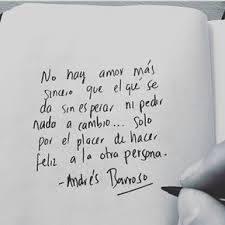 No hay amor más
sincero que el qué se
da sin esperar ni pedir
nada a cambio... Solo
por el placer de hacer
feliz a la otra persona.
-Andrés Barroso